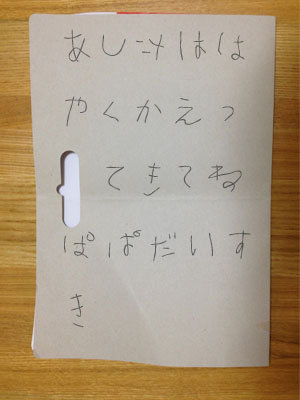 あしたはは
やくかえっ
てきてね
ぱぱだいす
き